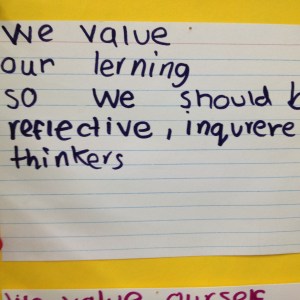 we value
our lerning
so we should b
reflective, inqurere
thinkers
we value ourself